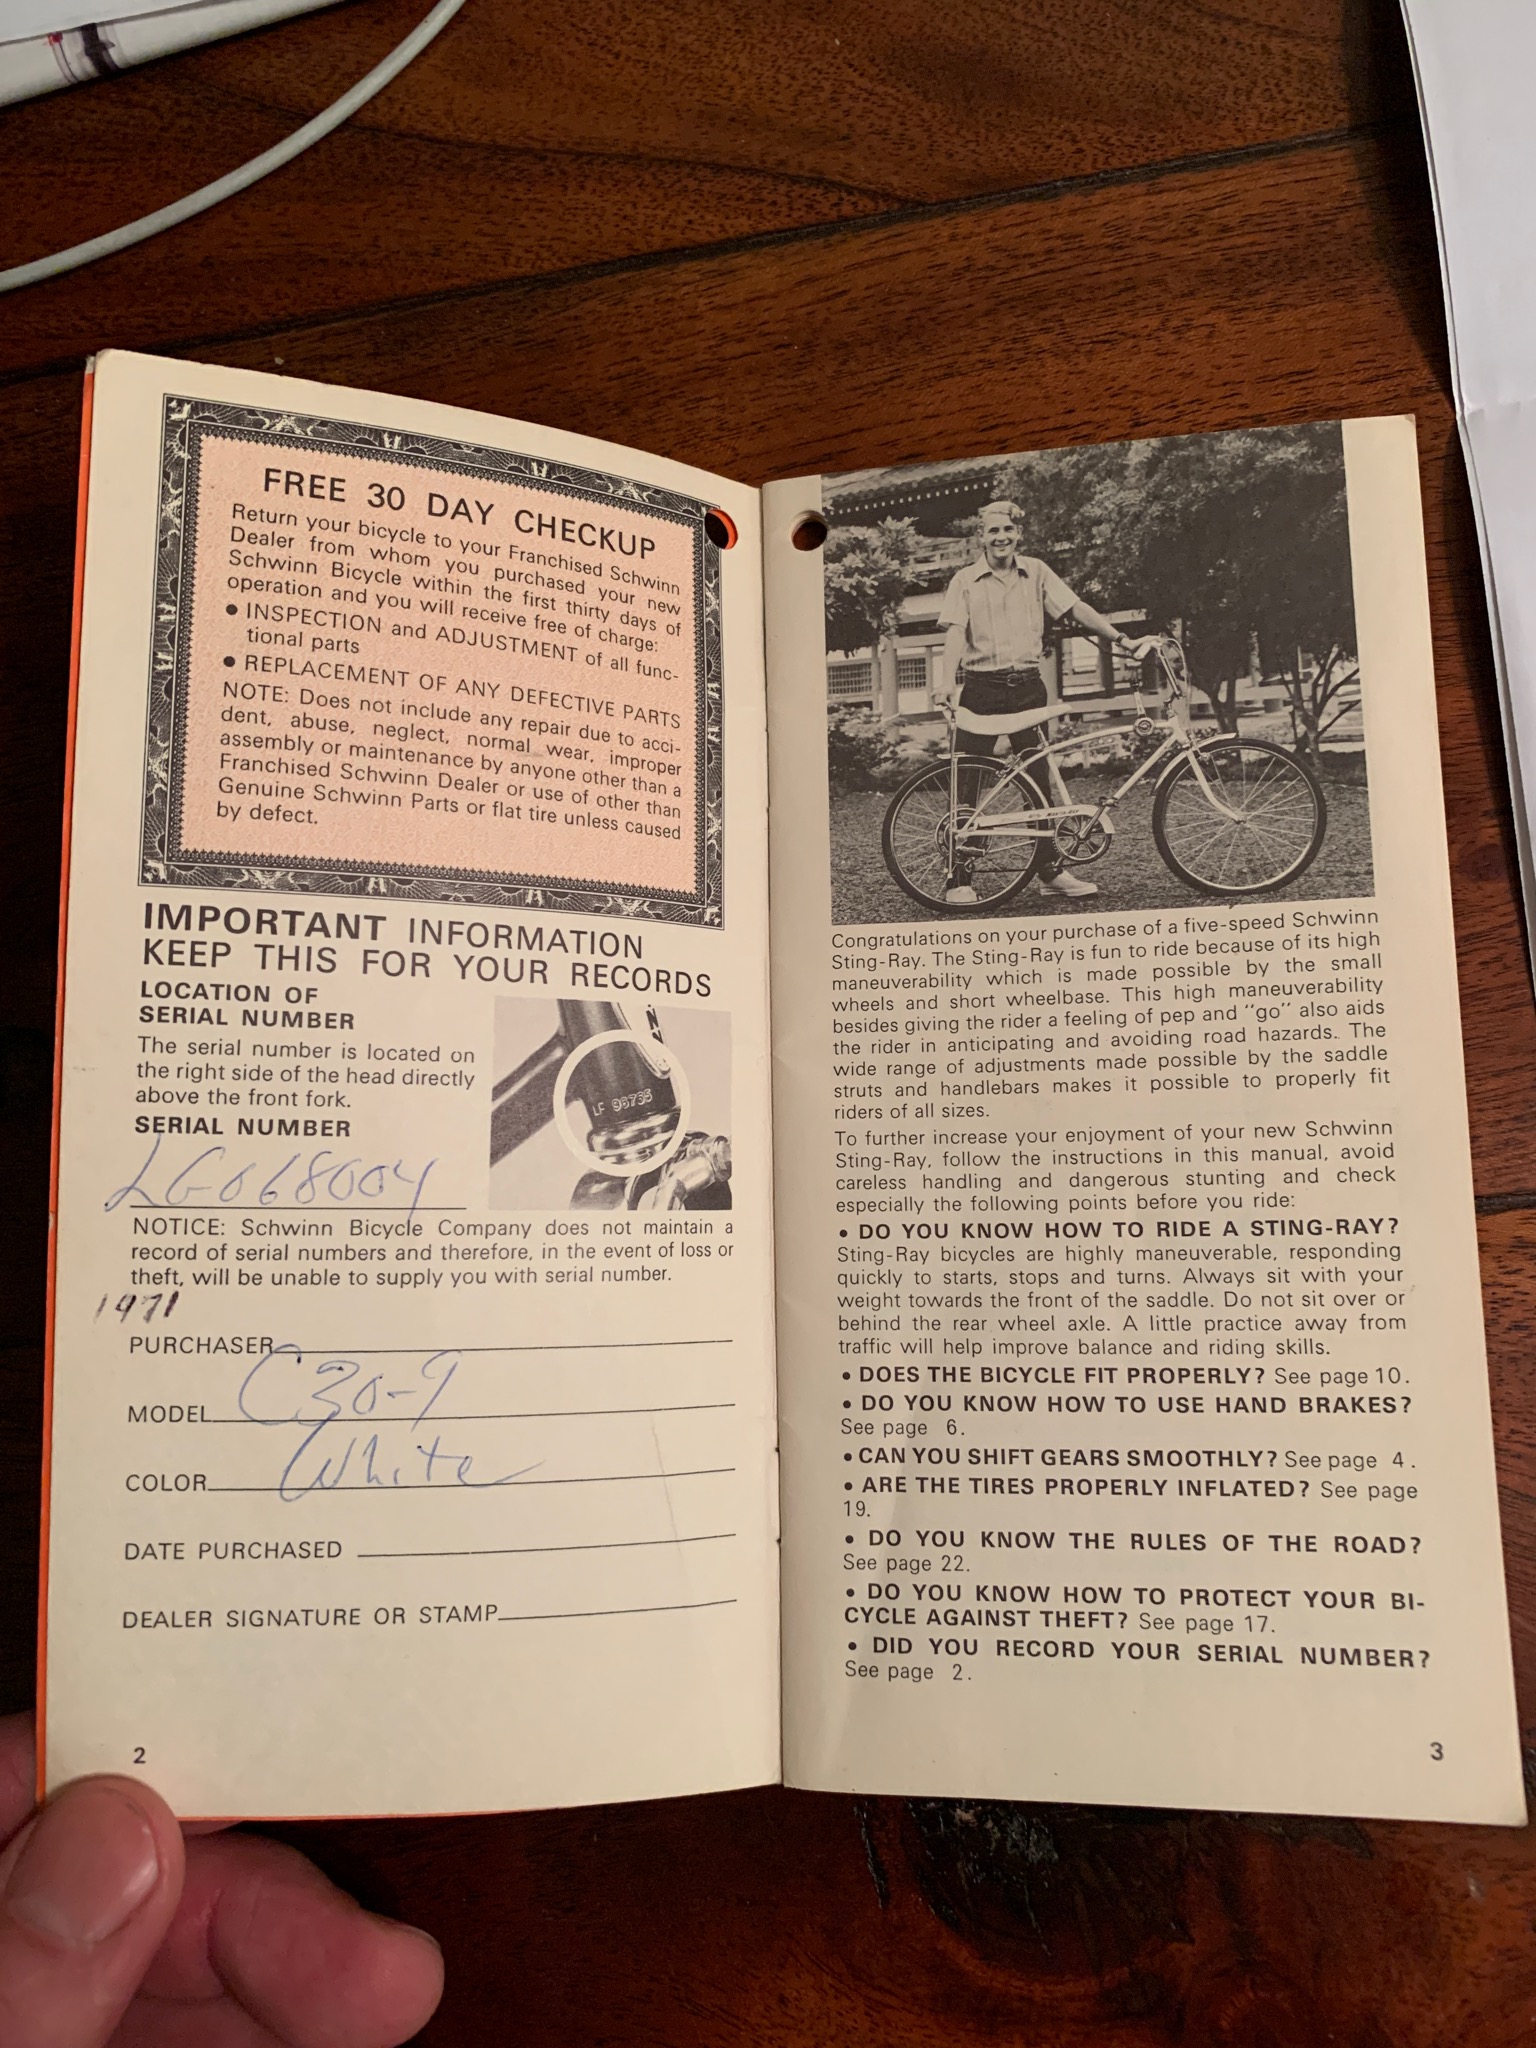 FREE 30 DAY CHECKUP
Return your bicycle to your Franchised Schwinn
Dealer from whom you purchased your new
Schwinn Bicycle within the first thirty days of
operation and you will receive free of charge:
• INSPECTION and ADJUSTMENT of all func-
tional parts
• REPLACEMENT OF ANY DEFECTIVE PARTS
NOTE: Does not include any repair due to acci-
dent, abuse, neglect, normal wear, improper
assembly or maintenance by anyone other than a
Franchised Schwinn Dealer or use of other than
Genuine Schwinn Parts or flat tire unless caused
by defect.
IMPORTANT INFORMATION
KEEP THIS FOR YOUR RECORDS
LOCATION OF
SERIAL NUMBER
The serial number is located on
the right side of the head directly
above the front fork.
LF 98765
SERIAL NUMBER
LG068004
NOTICE: Schwinn Bicycle Company does not maintain a
record of serial numbers and therefore, in the event of loss or
theft, will be unable to supply you with serial number.
1971
PURCHASER
MODEL C30-9
COLOR White
DATE PURCHASED
DEALER SIGNATURE OR STAMP
2
Congratulations on your purchase of a five-speed Schwinn
Sting-Ray. The Sting-Ray is fun to ride because of its high
maneuverability which is made possible by the small
wheels and short wheelbase. This high maneuverability
besides giving the rider a feeling of pep and "go" also aids
the rider in anticipating and avoiding road hazards. The
wide range of adjustments made possible by the saddle
struts and handlebars makes it possible to properly fit
riders of all sizes.
To further increase your enjoyment of your new Schwinn
Sting-Ray, follow the instructions in this manual, avoid
careless handling and dangerous stunting and check
especially the following points before you ride:
• DO YOU KNOW HOW TO RIDE A STING-RAY?
Sting-Ray bicycles are highly maneuverable, responding
quickly to starts, stops and turns. Always sit with your
weight towards the front of the saddle. Do not sit over or
behind the rear wheel axle. A little practice away from
traffic will help improve balance and riding skills.
• DOES THE BICYCLE FIT PROPERLY? See page 10.
• DO YOU KNOW HOW TO USE HAND BRAKES?
See page 6.
• CAN YOU SHIFT GEARS SMOOTHLY? See page 4.
• ARE THE TIRES PROPERLY INFLATED? See page
19.
• DO YOU KNOW THE RULES OF THE ROAD?
See page 22.
• DO YOU KNOW HOW TO PROTECT YOUR BI-
CYCLE AGAINST THEFT? See page 17.
• DID YOU RECORD YOUR SERIAL NUMBER?
See page 2.
3